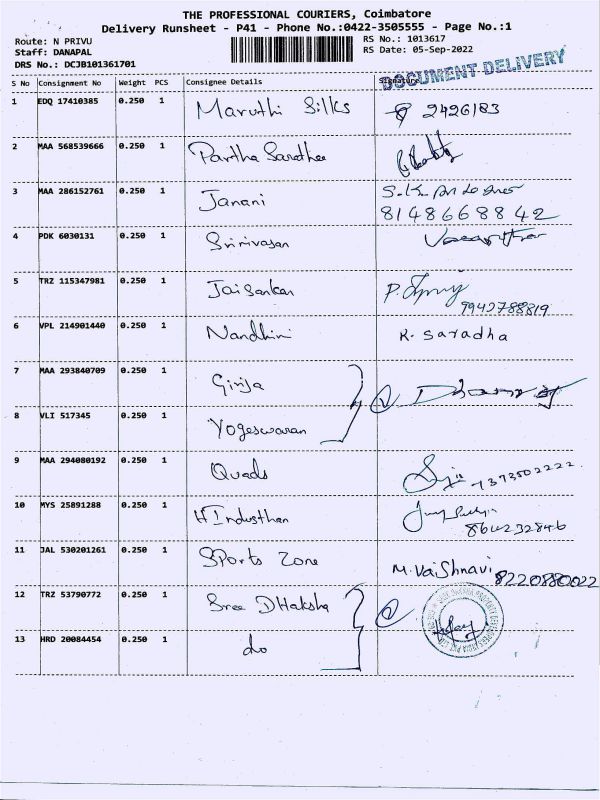 THE PROFESSIONAL COURIERS, Coimbatore
Delivery Runsheet - P41 - Phone No.:0422-3505555 - Page No.:1
Route: N PRIVU
Staff: DANAPAL
DRS No.: DCJB101361701
RS No.: 1013617
RS Date: 05-Sep-2022
DOCUMENT DELIVERY
S No Consignment No Weight PCS Consignee Details Signature
1 EDQ 17410385 0.250 1 Maruthi Silks 2426183
2 MAA 568539666 0.250 1 Partha Sarathee
3 MAA 286152761 0.250 1 Janani 8148668842
4 PDK 6030131 0.250 1 Srinivasan
5 TRZ 115347981 0.250 1 Jaisankar 9942788819
6 VPL 214901440 0.250 1 Nandhini K. Saradha
7 MAA 293840709 0.250 1 Girija
8 VLI 517345 0.250 1 Yogeswaran
9 MAA 294080192 0.250 1 Quads 7373502222
10 MYS 25891288 0.250 1 HIndusthan
11 JAL 530201261 0.250 1 SPorts Zone M.Vaishnavi 8220880022
12 TRZ 53790772 0.250 1 Sree DHaksha
13 HRD 20084454 0.250 1 do